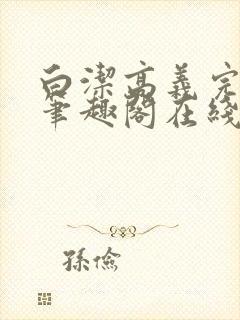 白潔高義完
筆趣閣在綫
孫儉